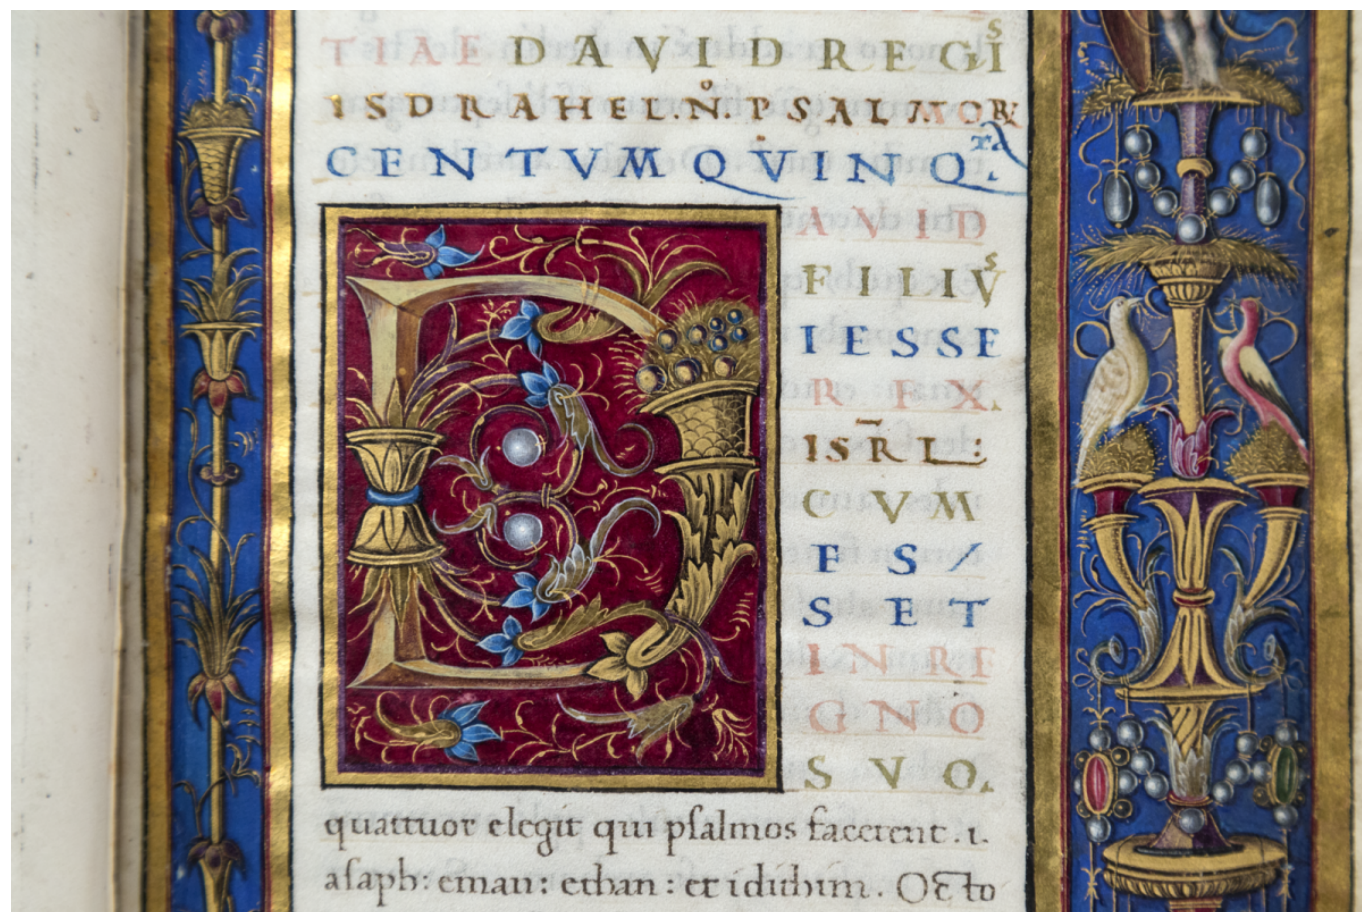 TIAE DAVID REGIS
ISDRAHEL. No. PSALMOR
CENTVM QVINQ.ta
DAVID
FILIVS
IESSE
REX.
ISRL:
CVM
ES/
SET
IN RE
GNO
SVO.
quattuor elegit qui pſalmos facerent. ı.
aſaph: eman: ethan: et idithim. Octo